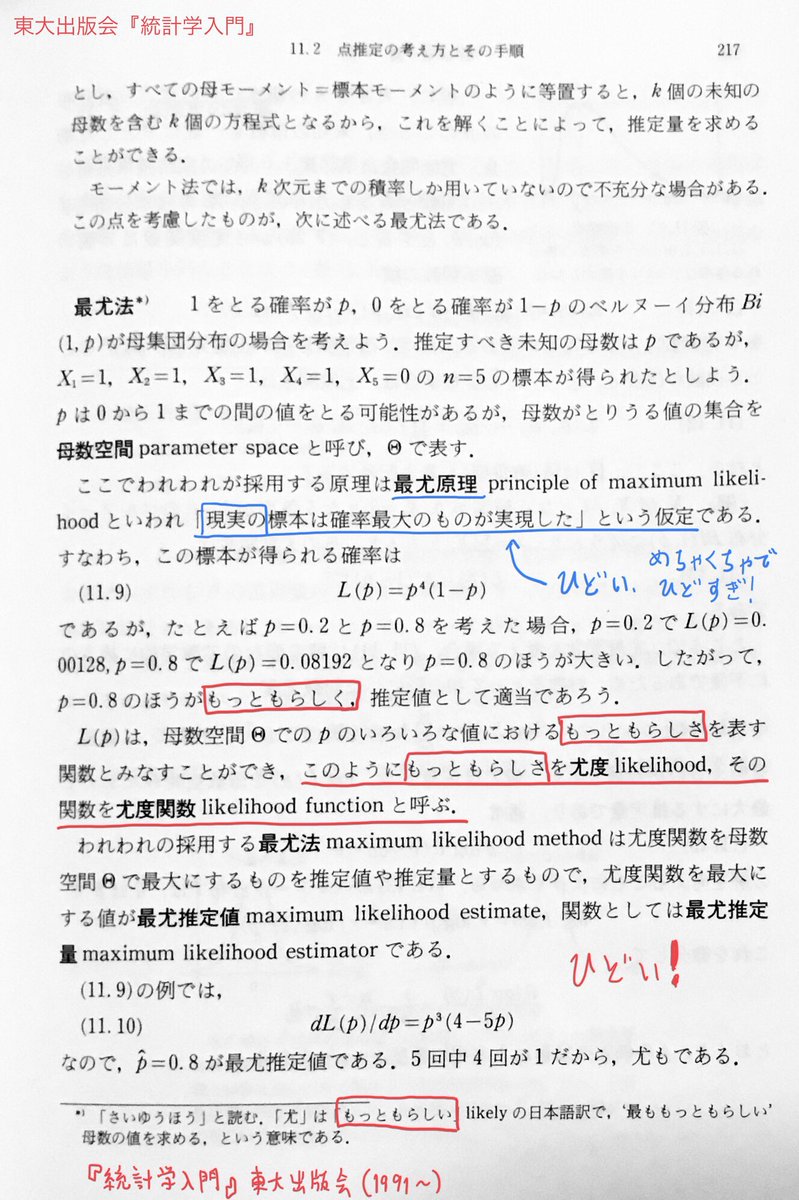 東大出版会『統計学入門』
11.2 点推定の考え方とその手順 217
とし，すべての母モーメント＝標本モーメントのように等置すると，k個の未知の
母数を含むk個の方程式となるから，これを解くことによって，推定量を求める
ことができる．
モーメント法では，k次元までの積率しか用いていないので不充分な場合がある．
この点を考慮したものが，次に述べる最尤法である．
最尤法*) 1をとる確率がp，0をとる確率が1−pのベルヌーイ分布Bi
(1, p)が母集団分布の場合を考えよう．推定すべき未知の母数はpであるが，
X₁=1, X₂=1, X₃=1, X₄=1, X₅=0のn=5の標本が得られたとしよう．
pは0から1までの間の値をとる可能性があるが，母数がとりうる値の集合を
母数空間 parameter space と呼び，Θで表す．
ここでわれわれが採用する原理は最尤原理 principle of maximum likeli-
hood といわれ「現実の標本は確率最大のものが実現した」という仮定である．
すなわち，この標本が得られる確率は
ひどい． めちゃくちゃで
ひどすぎ！
(11.9) L(p)=p⁴(1−p)
であるが，たとえばp=0.2とp=0.8を考えた場合，p=0.2でL(p)=0.
00128, p=0.8でL(p)=0.08192となりp=0.8のほうが大きい．したがって，
p=0.8のほうがもっともらしく，推定値として適当であろう．
L(p)は，母数空間Θでのpのいろいろな値におけるもっともらしさを表す
関数とみなすことができ，このようにもっともらしさを尤度 likelihood，その
関数を尤度関数 likelihood function と呼ぶ．
われわれの採用する最尤法 maximum likelihood method は尤度関数を母数
空間Θで最大にするものを推定値や推定量とするもので，尤度関数を最大に
する値が最尤推定値 maximum likelihood estimate，関数としては最尤推定
量 maximum likelihood estimator である．
ひどい！
(11.9)の例では，
(11.10) dL(p)/dp=p³(4−5p)
なので，p̂=0.8が最尤推定値である．5回中4回が1だから，尤もである．
*) 「さいゆうほう」と読む．「尤」は「もっともらしい」likelyの日本語訳で，‘最ももっともらしい’
母数の値を求める，という意味である．
『統計学入門』東大出版会 (1991〜)